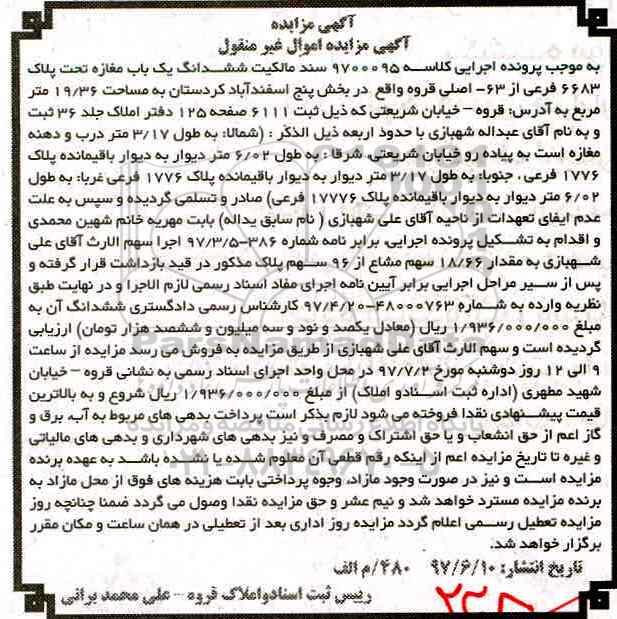 آگهی مزایده
آگهی مزایده اموال غیر منقول
به موجب پرونده اجرایی کلاسه ۹۷۰۰۰۹۵ سند مالکیت ششدانگ یک باب مغازه تحت پلاک
۶۶۸۳ فرعی از ۶۳- اصلی قروه واقع در بخش پنج اسفندآباد کردستان به مساحت ۱۹/۳۶ متر
مربع به آدرس: قروه – خیابان شریعتی که ذیل ثبت ۶۱۱۱ صفحه ۱۲۵ دفتر املاک جلد ۳۶ ثبت
و به نام آقای عبداله شهبازی با حدود اربعه ذیل الذکر : (شمالا: به طول ۳/۱۷ متر درب و دهنه
مغازه است به پیاده رو خیابان شریعتی. شرقا : به طول ۶/۰۲ متر دیوار به دیوار باقیمانده پلاک
۱۷۷۶ فرعی . جنوبا: به طول ۳/۱۷ متر دیوار به دیوار باقیمانده پلاک ۱۷۷۶ فرعی غربا: به طول
۶/۰۲ متر دیوار به دیوار باقیمانده پلاک ۱۷۷۷۶ فرعی) صادر و تسلمی گردیده و سپس به علت
عدم ایفای تعهدات از ناحیه آقای علی شهبازی ( نام سابق یداله) بابت مهریه خانم شهین محمدی
و اقدام به تشکیل پرونده اجرایی، برابر نامه شماره ۳۸۶-۹۷/۳/۵ اجرا سهم الارث آقای علی
شهبازی به مقدار ۱۸/۶۶ سهم مشاع از ۹۶ سهم پلاک مذکور در قید بازداشت قرار گرفته و
پس از سیر مراحل اجرایی برابر آیین نامه اجرای مفاد اسناد رسمی لازم الاجرا و در نهایت طبق
نظریه وارده به شماره ۴۸۰۰۰۷۶۳-۹۷/۴/۲۰ کارشناس رسمی دادگستری ششدانگ آن به
مبلغ ۱/۹۳۶/۰۰۰/۰۰۰ ریال (معادل یکصد و نود و سه میلیون و ششصد هزار تومان) ارزیابی
گردیده است و سهم الارث آقای علی شهبازی از طریق مزایده به فروش می رسد مزایده از ساعت
۹ الی ۱۲ روز دوشنبه مورخ ۹۷/۷/۲ در محل واحد اجرای اسناد رسمی به نشانی قروه – خیابان
شهید مطهری (اداره ثبت اسنادو املاک) از مبلغ ۱/۹۳۶/۰۰۰/۰۰۰ ریال شروع و به بالاترین
قیمت پیشنهادی نقدا فروخته می شود لازم بذکر است پرداخت بدهی های مربوط به آب، برق و
گاز اعم از حق انشعاب و یا حق اشتراک و مصرف و نیز بدهی های شهرداری و بدهی های مالیاتی
و غیره تا تاریخ مزایده اعم از اینکه رقم قطعی آن معلوم شده یا نشده باشد به عهده برنده
مزایده است و نیز در صورت وجود مازاد، وجوه پرداختی بابت هزینه های فوق از محل مازاد به
برنده مزایده مسترد خواهد شد و نیم عشر و حق مزایده نقدا وصول می گردد ضمنا چنانچه روز
مزایده تعطیل رسمی اعلام گردد مزایده روز اداری بعد از تعطیلی در همان ساعت و مکان مقرر
برگزار خواهد شد.
تاریخ انتشار: ۹۷/۶/۱۰ ۴۸۰/م الف
رییس ثبت اسنادواملاک قروه – علی محمد یرانی